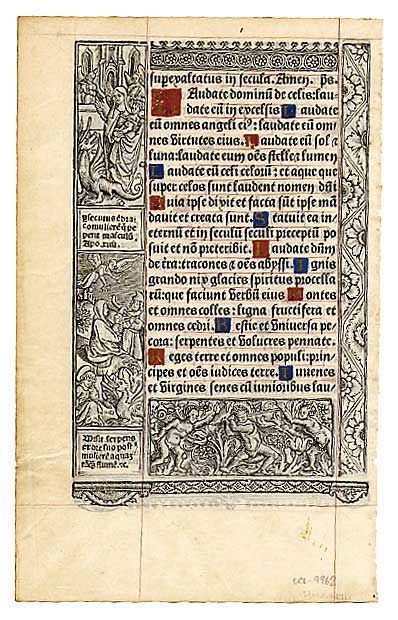 superexaltatus in secula. Amen. ps.
Laudate dominū de celis: lau
date eū in excelsis Laudate
eum omnes angeli eiꝰ: laudate eū om
nes Virtutes eius. Laudate eū sol ⁊
luna: laudate eum oēs stelle ⁊ lumen
Laudate eū celi celorū: et aque que
super celos sunt laudent nomen dn̄i
Quia ipse dixit et facta sūt ipse mā
dauit et creata sunt. Statuit ea in
eternū et in seculū seculi preceptū po
suit et nō preteribit. Laudate dn̄m
de terra: dracones ⁊ oēs abyssi. Ignis
grando nix glacies spiritus procella
rū: que faciunt Verbū eius Montes
et omnes colles: ligna fructifera et
omnes cedri. Bestie et Vniuersa pe
cora: serpentes et Volucres pennate.
Reges terre et omnes populi: prin
cipes et oēs iudices terre. Juuenes
et Virgines senes cū iunioribus lau
mulierē q̄ pe
perit masculū
Apo. xii.
Misit serpens
ex ore suo post
mulierē aquā